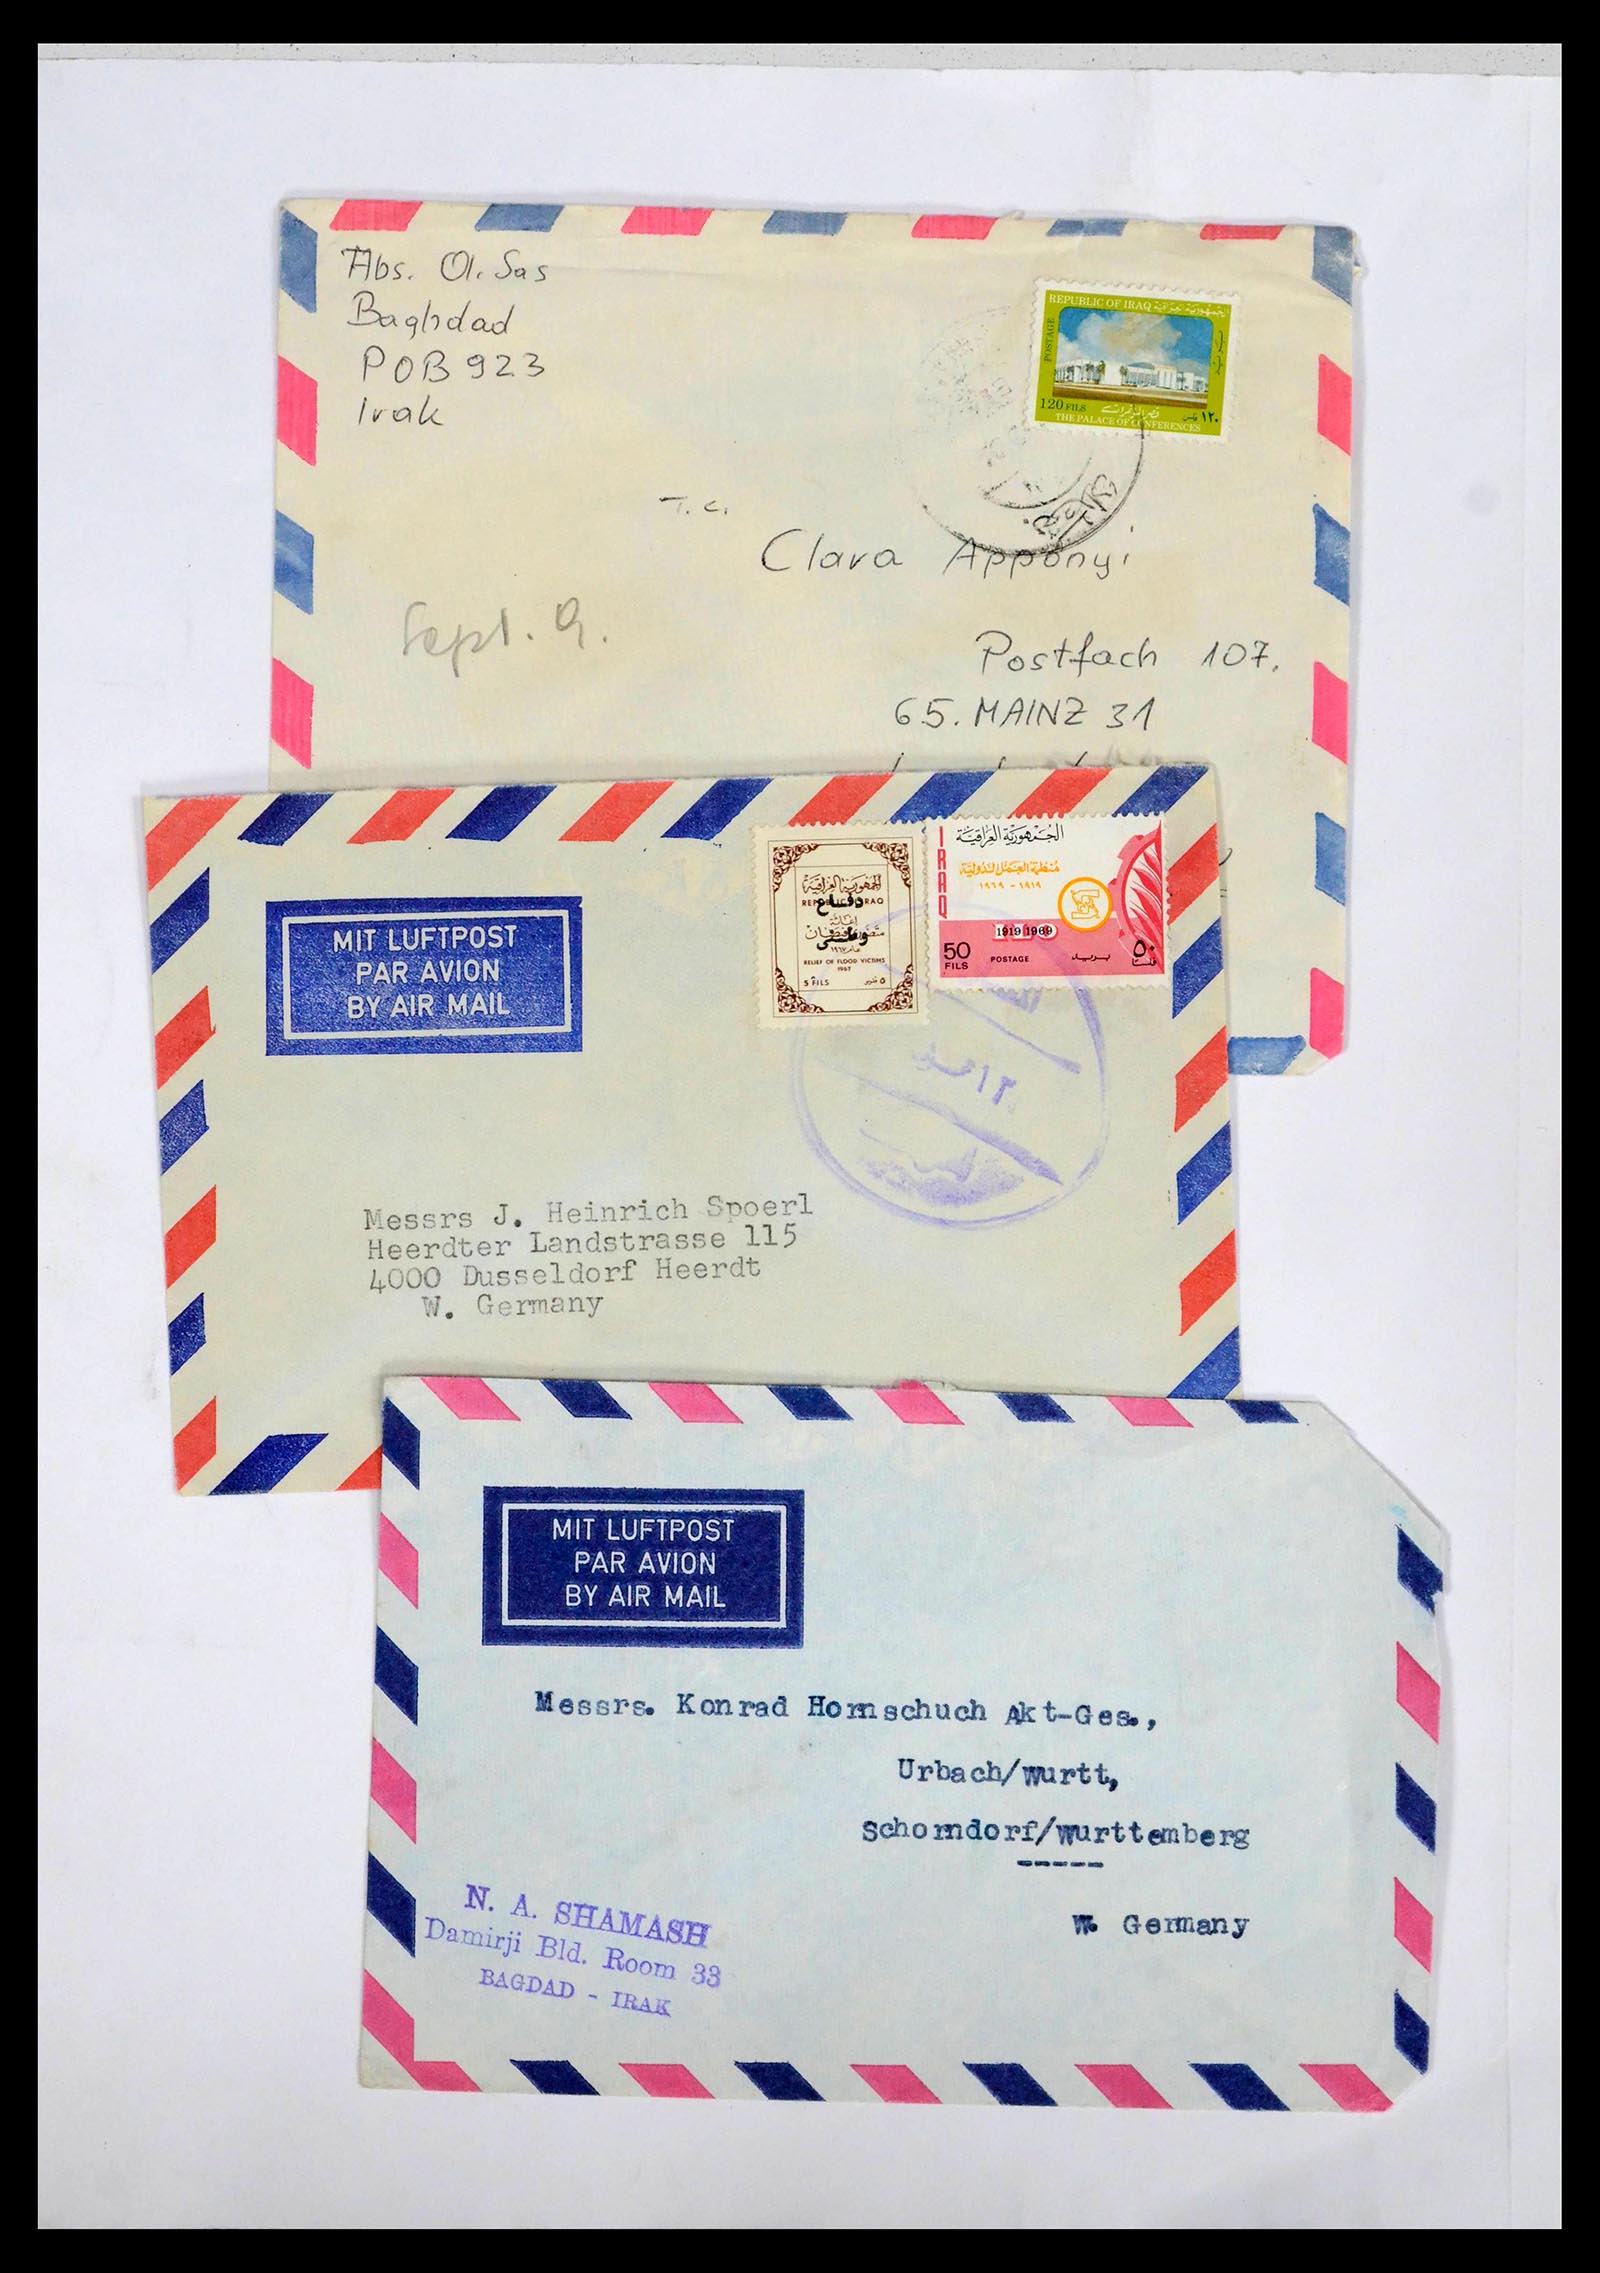 Abs. Ol. Sas
Baghdad
POB 923
Irak
REPUBLIC OF IRAQ الجمهورية العراقية
POSTAGE
120 FILS
١٢٠ فلس
THE PALACE OF CONFERENCES
T. C.
Clara Apponyi
Sept. 9.
Postfach 107.
65. MAINZ 31
MIT LUFTPOST
PAR AVION
BY AIR MAIL
الجمهورية العراقية
REPUBLIC OF IRAQ
دفاع
وطني
RELIEF OF FLOOD VICTIMS
1967
5 FILS
٥ فلوس
IRAQ
الجمهورية العراقية
منظمة العمل الدولية
١٩١٩ - ١٩٦٩
1919 1969
ILO
50 FILS
POSTAGE
بريد
٥٠ فلسا
Messrs J. Heinrich Spoerl
Heerdter Landstrasse 115
4000 Dusseldorf Heerdt
W. Germany
MIT LUFTPOST
PAR AVION
BY AIR MAIL
Messrs. Konrad Hornschuch Akt-Ges.,
Urbach/Wurtt,
Schorndorf/Wurttemberg
-----
W. Germany
N. A. SHAMASH
Damirji Bld. Room 33
BAGDAD - IRAK